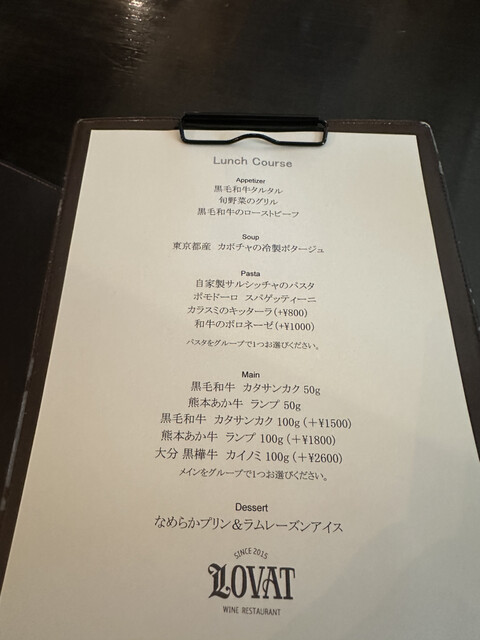 Lunch Course
Appetizer
黒毛和牛タルタル
旬野菜のグリル
黒毛和牛のローストビーフ
Soup
東京都産 カボチャの冷製ポタージュ
Pasta
自家製サルシッチャのパスタ
ポモドーロ スパゲッティーニ
カラスミのキッターラ(+¥800)
和牛のボロネーゼ(+¥1000)
パスタをグループで1つお選びください。
Main
黒毛和牛 カタサンカク 50g
熊本あか牛 ランプ 50g
黒毛和牛 カタサンカク 100g(+¥1500)
熊本あか牛 ランプ 100g(+¥1800)
大分 黒樺牛 カイノミ 100g(+¥2600)
メインをグループで1つお選びください。
Dessert
なめらかプリン&ラムレーズンアイス
SINCE 2015
LOVAT
WINE RESTAURANT